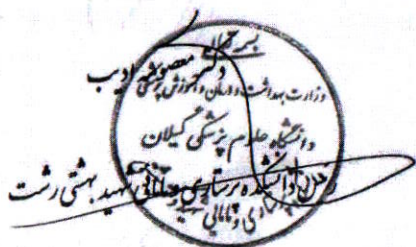 بسمه تعالی
دکتر معصومه ادیب
وزارت بهداشت و درمان و آموزش پزشکی
دانشگاه علوم پزشکی گیلان
دانشکده پرستاری مامائی شهید بهشتی رشت